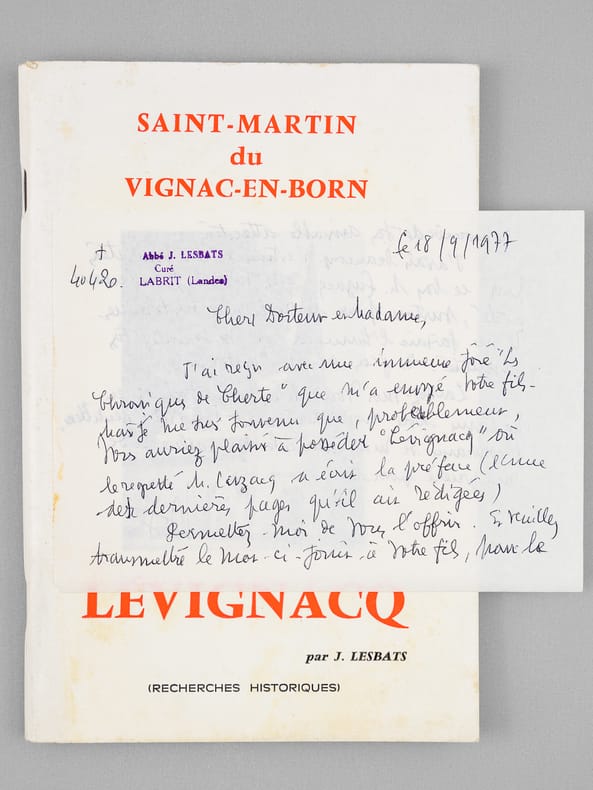 SAINT-MARTIN
du
VIGNAC-EN-BORN
le 18/9/1977
+
40420.
Abbé J. LESBATS
Curé
LABRIT (Landes)
Chers Docteur et Madame,
J'ai reçu avec une immense joie "Les
Chroniques de Cherté" que m'a envoyé votre fils-
mais je me suis souvenu que, probablement,
vous auriez plaisir à posséder "Lévignacq" où
le regretté M. Cuzacq a écrit la préface (l'une
des dernières pages qu'il ait rédigées)
Permettez-moi de vous l'offrir. Et veuillez
transmettre le mot-ci-joint-à votre fils, pour le
LÉVIGNACQ
par J. LESBATS
(RECHERCHES HISTORIQUES)